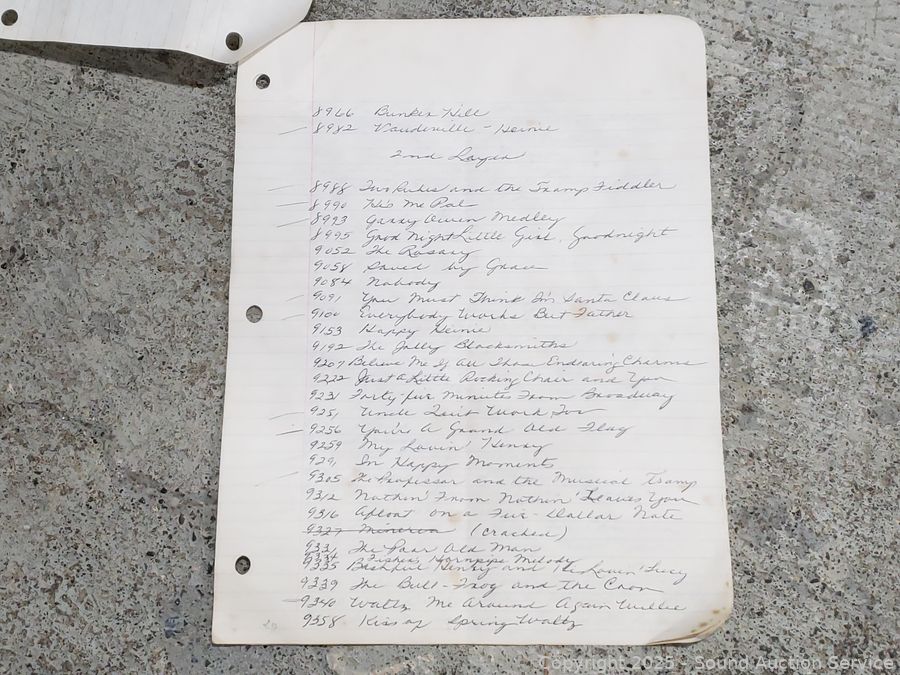 8966 Bunker Hill
8982 Vaudeville - Heinie
2nd Layer
8988 Two Rubes and the Tramp Fiddler
8990 He's Me Pal
8993 Garry Owen Medley
8995 Good Night Little Girl, Goodnight
9052 The Rosary
9058 Saved by Grace
9084 Nobody
9091 You Must Think I'm Santa Claus
9100 Everybody Works But Father
9153 Happy Heinie
9192 The Jolly Blacksmiths
9207 Believe Me If All Those Endearing Charms
9222 Just A Little Rocking Chair and You
9231 Forty-five Minutes From Broadway
9251 Uncle Quit Work Too
9256 You're A Grand Old Flag
9259 My Lovin' Henry
9291 In Happy Moments
9305 The Professor and the Musical Tramp
9312 Nothin' From Nothin' Leaves You
9316 Afloat on a Five-Dollar Note
9327 Minerva (cracked)
9331 The Poor Old Man
9334 Fisher's Hornpipe Medley
9335 Bashful Henry and His Lovin' Lucy
9339 The Bull-Frog and the Coon
9340 Waltz Me Around Again Willie
9358 Kiss of Spring Waltz
20
Copyright 2025 - Sound Auction Service